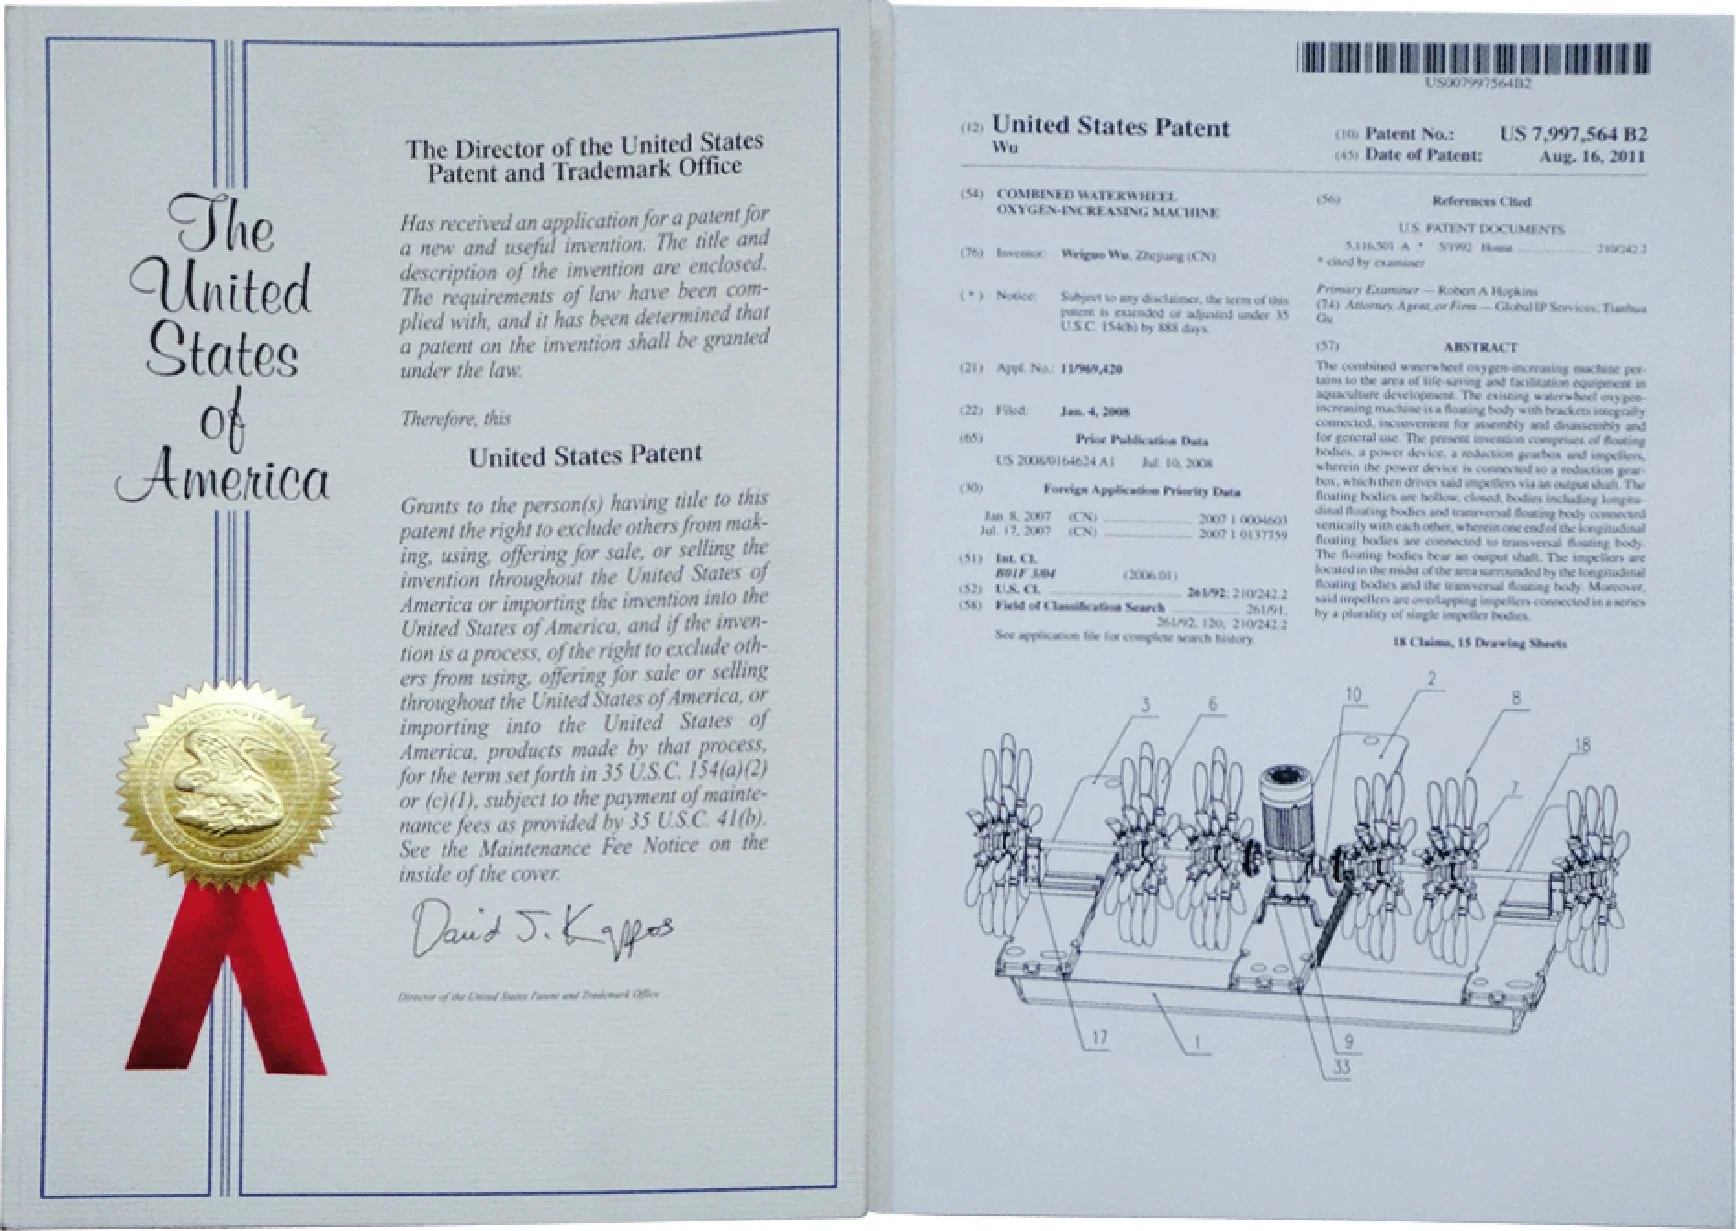 The
United
States
of
America
The Director of the United States
Patent and Trademark Office
Has received an application for a patent for
a new and useful invention. The title and
description of the invention are enclosed.
The requirements of law have been com-
plied with, and it has been determined that
a patent on the invention shall be granted
under the law.
Therefore, this
United States Patent
Grants to the person(s) having title to this
patent the right to exclude others from mak-
ing, using, offering for sale, or selling the
invention throughout the United States of
America or importing the invention into the
United States of America, and if the inven-
tion is a process, of the right to exclude oth-
ers from using, offering for sale or selling
throughout the United States of America, or
importing into the United States of
America, products made by that process,
for the term set forth in 35 U.S.C. 154(a)(2)
or (c)(1), subject to the payment of mainte-
nance fees as provided by 35 U.S.C. 41(b).
See the Maintenance Fee Notice on the
inside of the cover.
David J. Kappos
Director of the United States Patent and Trademark Office
US007997564B2
(12) United States Patent
Wu
(10) Patent No.: US 7,997,564 B2
(45) Date of Patent: Aug. 16, 2011
(54) COMBINED WATERWHEEL
OXYGEN-INCREASING MACHINE
(76) Inventor: Weiguo Wu, Zhejiang (CN)
(*) Notice: Subject to any disclaimer, the term of this
patent is extended or adjusted under 35
U.S.C. 154(b) by 888 days.
(21) Appl. No.: 11/969,420
(22) Filed: Jan. 4, 2008
(65) Prior Publication Data
US 2008/0164624 A1 Jul. 10, 2008
(30) Foreign Application Priority Data
Jan. 8, 2007 (CN) 2007 1 0004603
Jul. 17, 2007 (CN) 2007 1 0137759
(51) Int. Cl.
B01F 3/04 (2006.01)
(52) U.S. Cl. 261/92; 210/242.2
(58) Field of Classification Search 261/91,
261/92, 120; 210/242.2
See application file for complete search history.
(56) References Cited
U.S. PATENT DOCUMENTS
5,116,501 A * 5/1992 House 210/242.2
* cited by examiner
Primary Examiner — Robert A Hopkins
(74) Attorney, Agent, or Firm — Global IP Services; Tianhua
Gu
(57) ABSTRACT
The combined waterwheel oxygen-increasing machine per-
tains to the area of life-saving and facilitation equipment in
aquaculture development. The existing waterwheel oxygen-
increasing machine is a floating body with brackets integrally
connected, inconvenient for assembly and disassembly and
for general use. The present invention comprises of floating
bodies, a power device, a reduction gearbox and impellers,
wherein the power device is connected to a reduction gear-
box, which then drives said impellers via an output shaft. The
floating bodies are hollow, closed, bodies including longitu-
dinal floating bodies and transversal floating body connected
vertically with each other, wherein one end of the longitudinal
floating bodies are connected to transversal floating body.
The floating bodies bear an output shaft. The impellers are
located in the midst of the area surrounded by the longitudinal
floating bodies and the transversal floating body. Moreover,
said impellers are overlapping impellers connected in a series
by a plurality of single impeller bodies.
18 Claims, 15 Drawing Sheets
3
6
10
2
8
18
7
17
1
9
33